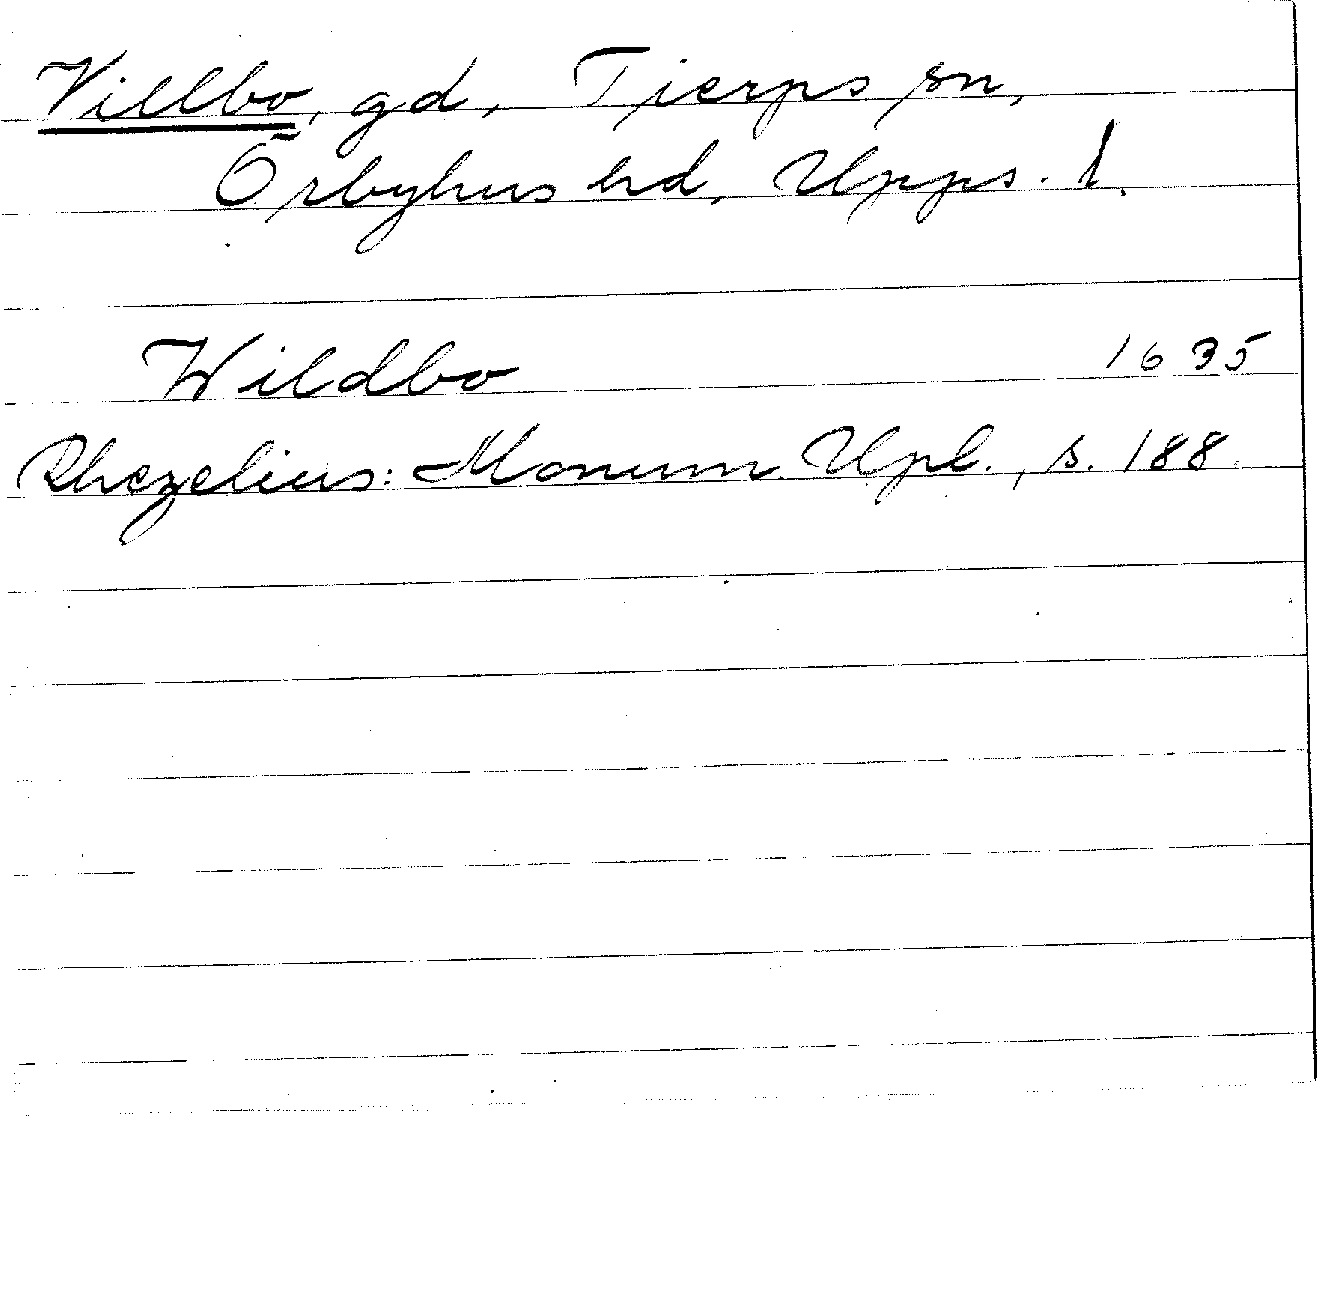 Villbo, gd, Tierps sn,
Örbyhus hd, Upps. l.
Wildbo 1635
Rhezelius: Monum. Upl., s. 188.